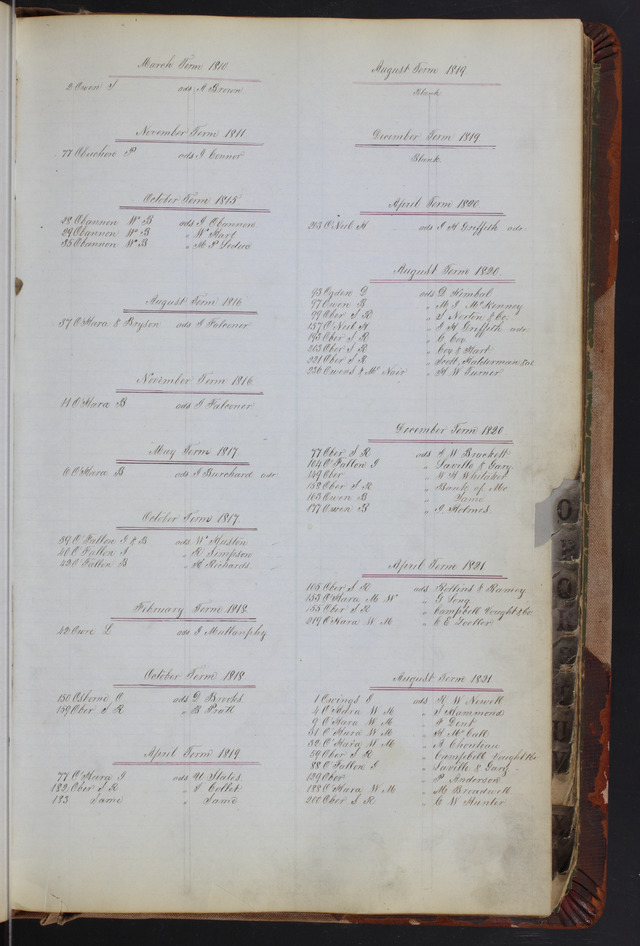 March Term 1810
2 Owen S ads A Brown
November Term 1811
77 Obuchon P ads J Connor
October Term 1815
28 Obannon Wm B ads J Obannon
29 Obannon Wm B " Wm Hart
35 Obannon Wm B " M P Leduc
August Term 1816
37 O'Hara & Bryson ads J Falconer
November Term 1816
11 O'Hara B ads J Falconer
May Term 1817
6 O'Hara B ads J Burchard adr
October Term 1817
39 O'Fallon J & B ads Wm Huston
40 O'Fallon J " R Simpson
42 O'Fallon B " M Richards
February Term 1818
42 Owre L ads J Mullanphy
October Term 1818
150 Osborne O ads D Brooks
159 Ober S R " B Pratt
April Term 1819
77 O'Hara J ads U States
182 Ober S R " J Collet
183 Same " Same
August Term 1819
Blank
December Term 1819
Blank
April Term 1820
203 O'Neil H ads J H Griffith adr
August Term 1820
93 Ogden D ads D Kimbal
97 Owen B " M J McKenney
99 Ober S R " S Norton & Co
157 O'Neil H " J H Griffith adr
195 Ober S R " C Cox
213 Ober S R " Cox & Hart
221 Ober S R " Scott, Halderman &co
236 Owens & McNair " H W Turner
December Term 1820
77 Ober S R ads A W Brackett
104 O'Fallon J " Saville & Gary
149 Ober " W H Whitaker
152 Ober S R " Bank of Mo
163 Owen B " Same
177 Owen B " J Holmes
April Term 1821
105 Ober S R ads Rollins & Ramey
153 O'Hara M W " G Long
155 Ober S R " Campbell Vought & Co
219 O'Hara W M " C E
August Term 1821
1 Owings J ads R W Newell
4 O'Hara W M " S Hammond
9 O'Hara W M " F Dent
51 O'Hara W M " H McCall
52 O'Hara W M " A Choutian
59 Ober S R " Campbell Vought &co
88 O'Fallon J " Saville & Gary
139 Ober " P Anderson
188 O'Hara W M " M Broadwell
200 Ober S R " C W Hunter
O
P
Q
R
S
U
V
W